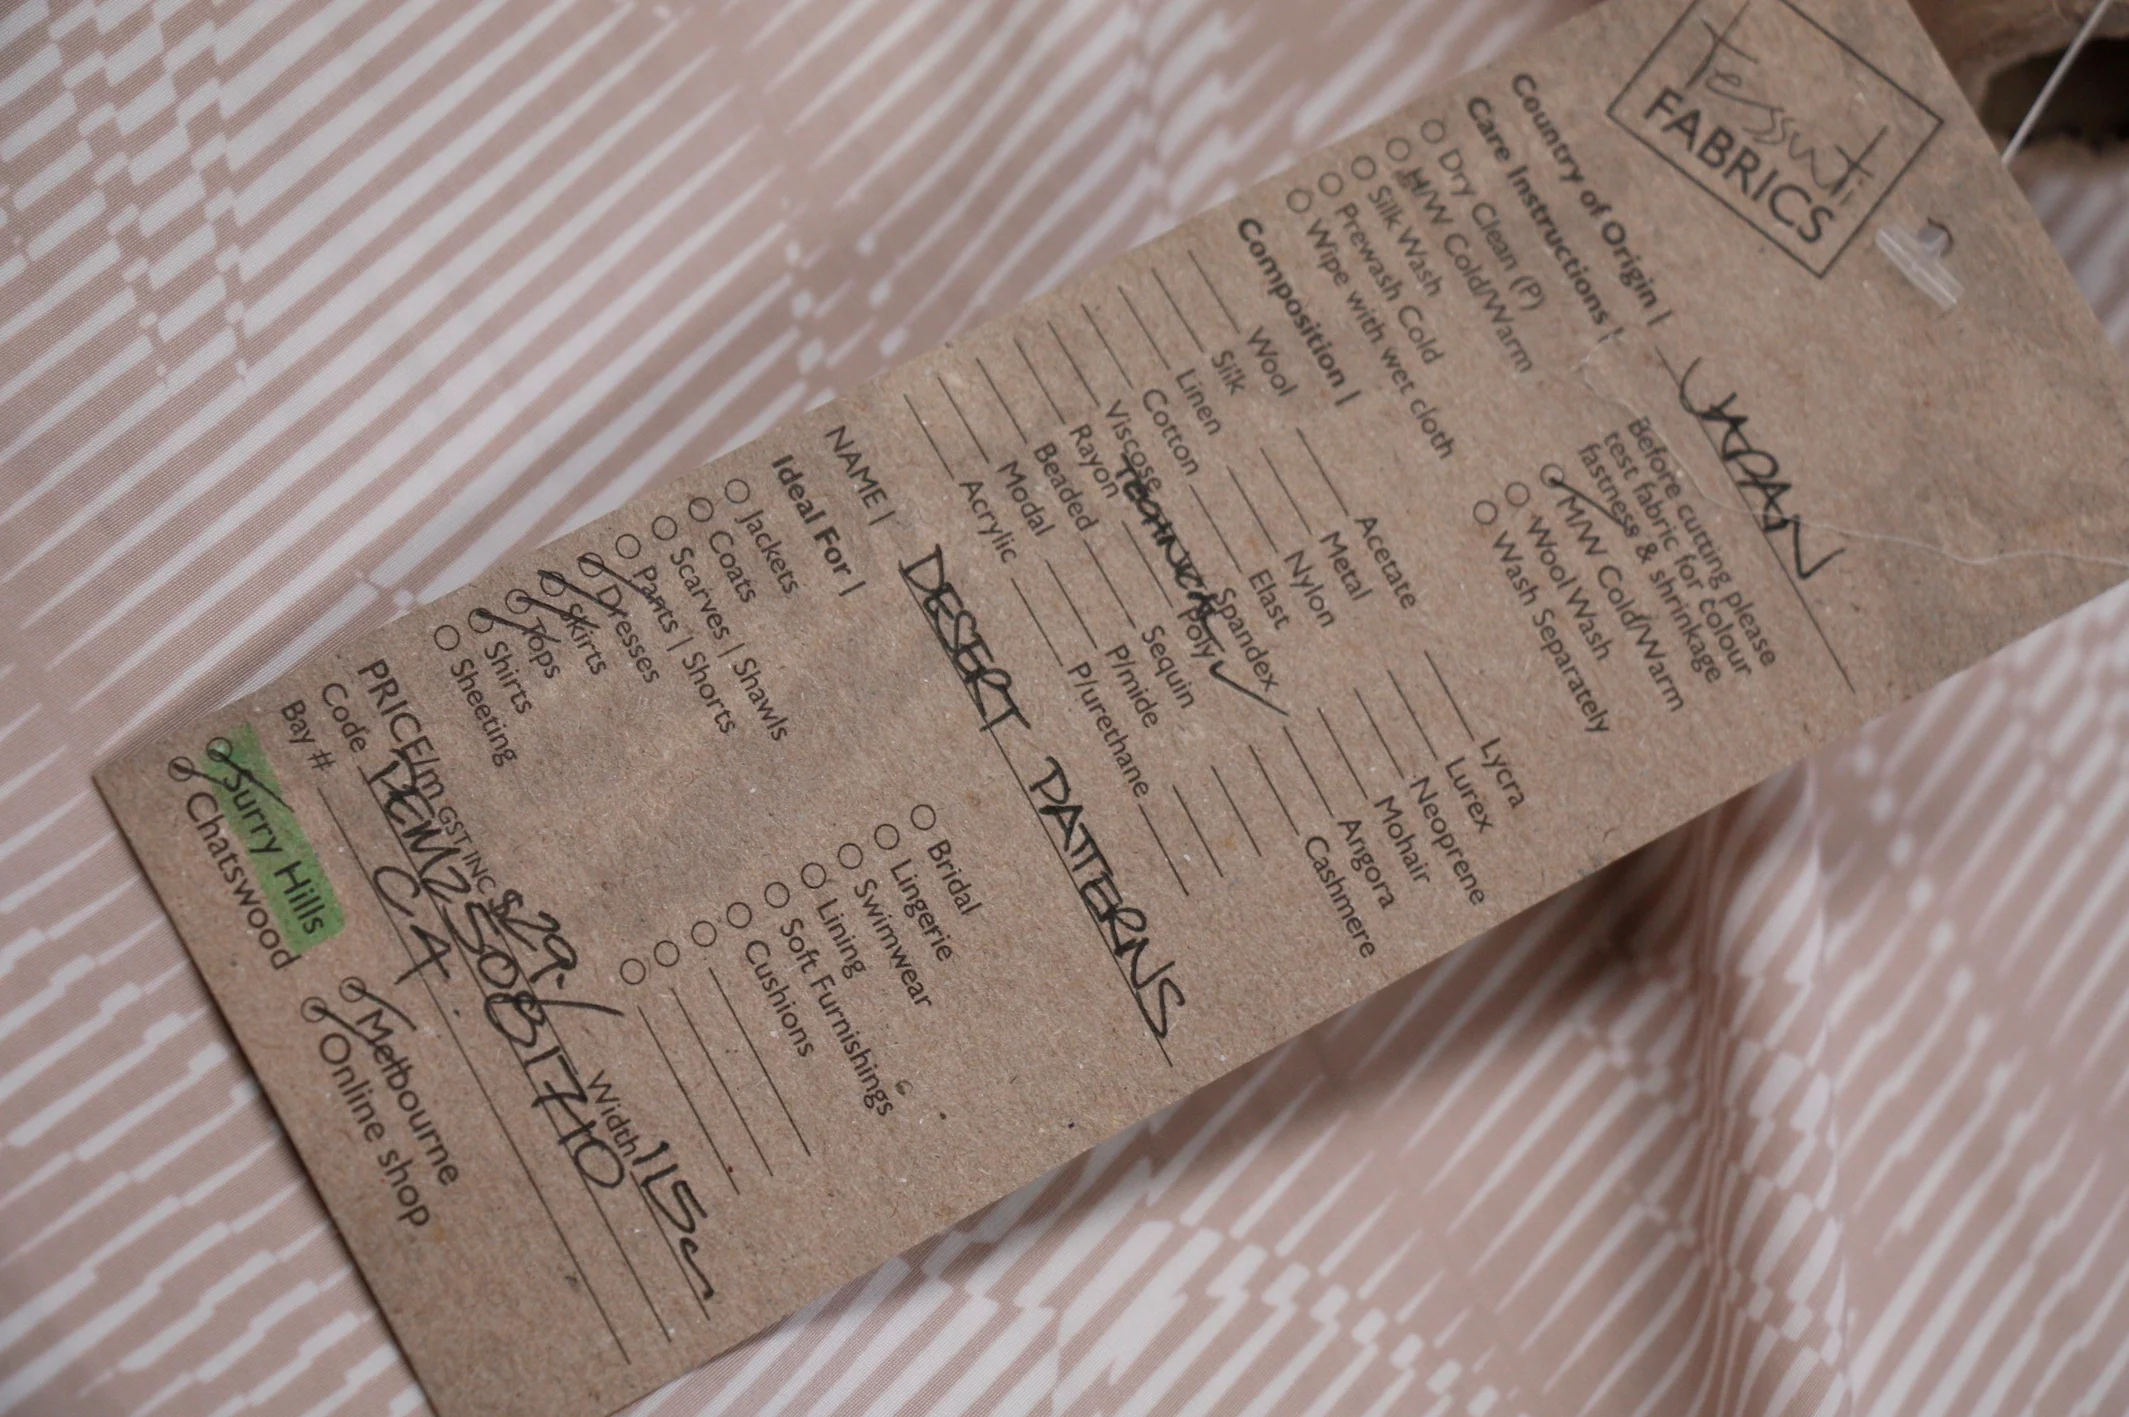 Tessuti
FABRICS
Country of Origin | JAPAN
Care Instructions |
Before cutting please
test fabric for colour
fastness & shrinkage
Dry Clean (P)
H/W Cold/Warm
Silk Wash
Prewash Cold
Wipe with wet cloth
M/W Cold/Warm
Wool Wash
Wash Separately
Composition |
Wool Acetate Lycra
Silk Metal Lurex
Linen Nylon Neoprene
Cotton Elast Mohair
Viscose Spandex Angora
Rayon TECHNICAL Poly ✓ Cashmere
Beaded Sequin
Modal P/mide
Acrylic P/urethane
NAME | DESERT PATTERNS
Ideal For |
Jackets Bridal
Coats Lingerie
Scarves | Shawls Swimwear
Pants | Shorts Lining
Dresses Soft Furnishings
Skirts Cushions
Tops
Shirts
Sheeting
PRICE/m GST INC $29.- Width 115c
Code
Bay # C4
Surry Hills Melbourne
Chatswood Online shop